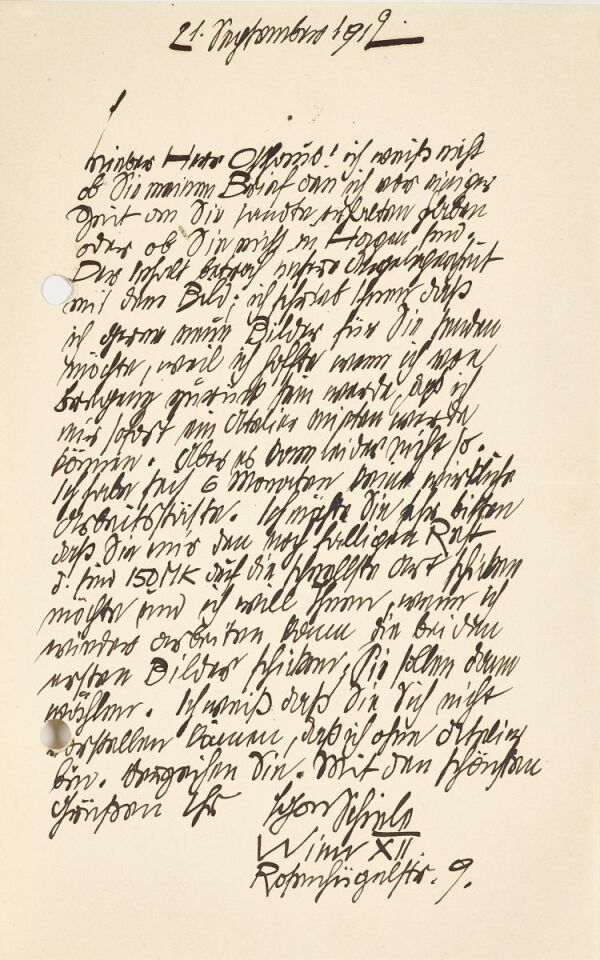 21. September 1912.
Lieber Herr Osthaus! ich weiß nicht
ob Sie meinen Brief den ich vor einiger
Zeit an Sie sandte, erhalten haben
oder ob Sie nicht in Hagen sind.
Der Inhalt betraf unsere Angelegenheit
mit dem Bild; ich schrieb Ihnen daß
ich gerne neue Bilder für Sie senden
möchte, weil ich hoffte wenn ich von
Bregenz zurück sein werde, daß ich
mir sofort ein Atelier mieten werde
können. Aber es kam leider nicht so.
Ich habe seit 6 Monaten keine wirkliche
Arbeitsstätte. Ich möchte Sie sehr bitten
daß Sie mir den noch fälligen Rest
d. sind 150 MK auf die schnellste Art schicken
möchten und ich will Ihnen, wenn ich
wieder arbeiten kann die beiden
ersten Bilder schicken; Sie sollen dann
wählen. Ich weiß daß Sie Sich nicht
vorstellen können, daß ich ohne Atelier
bin. Verzeihen Sie. Mit den schönsten
Grüßen Ihr Egon Schiele
Wien XII.
Rosenhügelstr. 9.